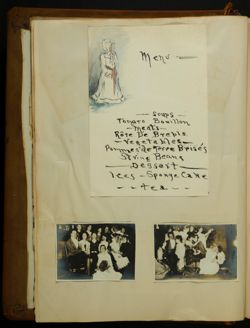 Menu —
— Soups —
Tomato Bouillon
— Meats —
Rôte De Brebis
— Vegetables —
Pommes de Terre Brisés
String Beans
— Dessert —
Ices — Sponge Cake
— Tea —